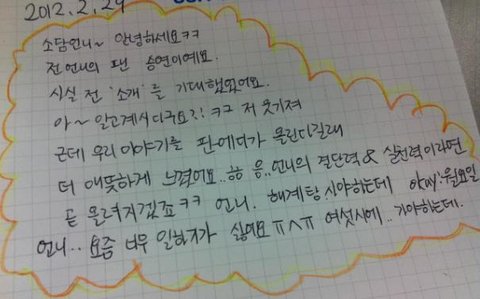 2012.2.29
소담언니~ 안녕하세요ㅋㅋ
전 언니의 팬 승연이에요.
사실 전 '소개'를 기대했었어요.
아~ 알고계시다구요?! ㅋㅋ 저 웃기져
근데 우리 이야기를 판에다가 올린다길래
더 애뜻하게 느꼈어요..ㅎㅎ 응..언니의 결단력 & 실천력이라면
곧 올려지겠죠ㅋㅋ 언니. 해계탕.사야하는데 아놔.월요일
언니.. 요즘 너무 일하기가 싫어요ㅠㅅㅠ 여섯시에..가야하는데.